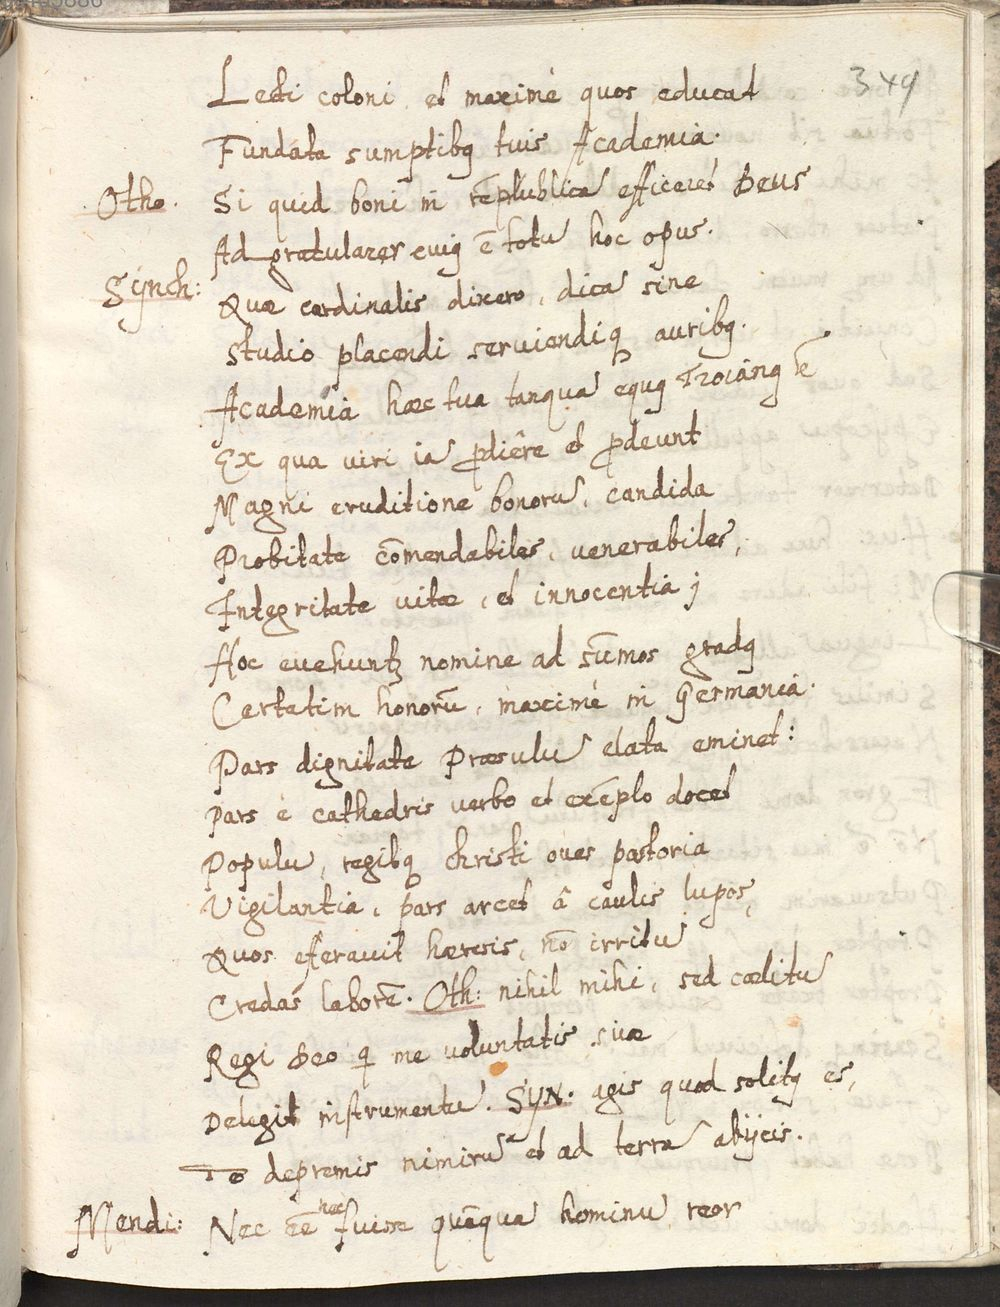 349
Lecti coloni et maximè quos educat
Fundata sumptibꝗ tuis Academia.
Otho. Si quid boni in rēpublicā efficeret Deus
Ad gratularer cuiꝗ ē totū hoc opus.
Synch: Quæ cardinalis dixero, dicā sine
Studio placendi seruiendiqꝫ auribꝗ.
Academia hæc tua tanquā equꝗ Troiānꝗ ē
Ex qua viri iā ꝓdiêre et ꝓdeunt
Magni eruditione bonorū, candida
Probitate cōmendabiles, venerabiles,
Integritate vitæ, et innocentia;
Hoc euehuntꝫ nomine ad sūmos gradꝗ
Certatim honorū, maximè in Germania.
Pars dignitate Præsulū elata eminet:
Pars è cathedris verbo et exēplo docet
Populū, regitqꝫ Christi oues pastoria
Vigilantia, pars arcet â caulis lupos,
Quos efferauit hæresis, nō irritū
Credas laborē. Oth: nihil mihi, sed cœlitū
Regi Deo qͥ me voluntatis suæ
Delegit instrumentū. SYN. agis quod solitꝗ es,
Te depremis nimirū et ad terrā abijcis.
Mendi: Nec eē nec fuisse quēquā hominū reor